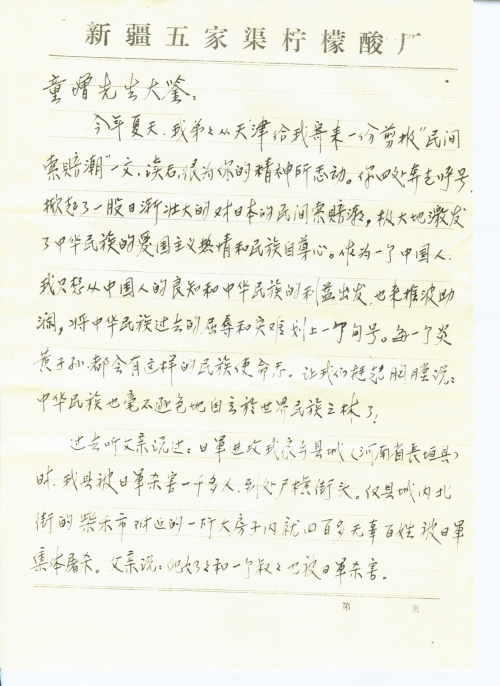 新疆五家渠柠檬酸厂
童增先生大鉴：
今年夏天，我弟々从天津给我寄来一份剪报"民间
索赔潮"一文，读后，很为你的精神所感动。你四处奔走呼号，
掀起了一股日渐壮大的对日本的民间索赔潮，极大地激发
了中华民族的爱国主义热情和民族自尊心。作为一个中国人，
我只想从中国人的良知和中华民族的利益出发，也来推波助
澜，将中华民族过去的屈辱和灾难划上一个句号。每一个炎
黄子孙，都会有这样的民族使命感。让我们挺起胸膛说：
中华民族也毫不逊色地自立於世界民族之林了！
过去听父亲说过：日軍进攻我家乡县城（河南省長垣县）
时，我县被日軍杀害一千多人，到处尸横街头。仅县城内北
街的柴禾市附近的一所大房子内就四百多无辜百姓被日軍
集体屠杀。父亲说：他奶々和一个叔々也被日軍杀害。
第 页